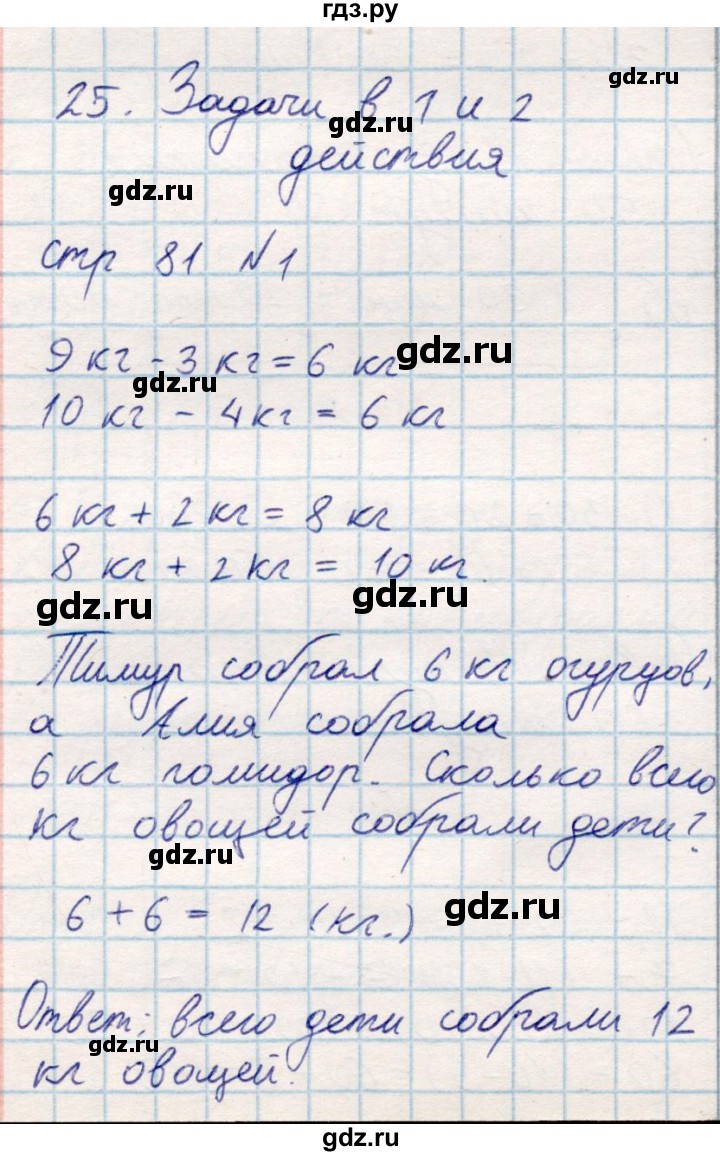 гдз.ру
gdz.ru
25. Задачи в 1 и 2
gdz.ru
действия
gdz.ru
стр 81 №1
9 кг - 3 кг = 6 кг
gdz.ru
gdz.ru
10 кг - 4 кг = 6 кг
6 кг + 2 кг = 8 кг
8 кг + 2 кг = 10 кг.
gdz.ru
gdz.ru
Тимур собрал 6 кг огурцов,
а Алия собрала
6 кг помидор. Сколько всего
кг овощей собрали дети?
gdz.ru
6 + 6 = 12 (кг.)
gdz.ru
Ответ: всего дети собрали 12
gdz.ru
кг овощей.
gdz.ru